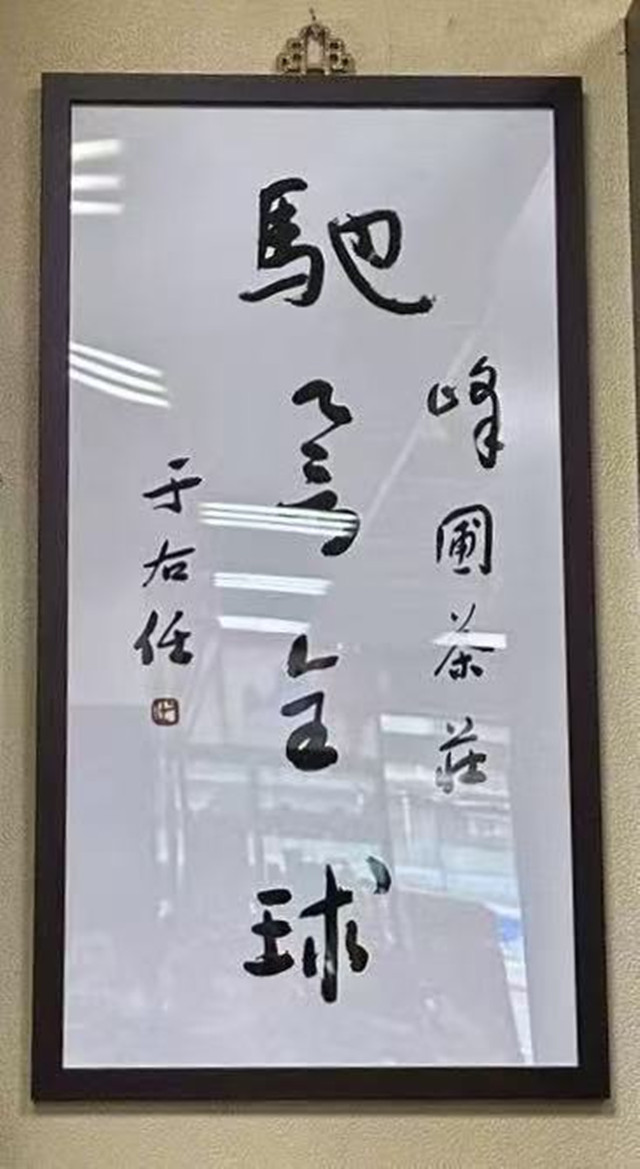 峰圃茶莊
馳譽全球
于右任